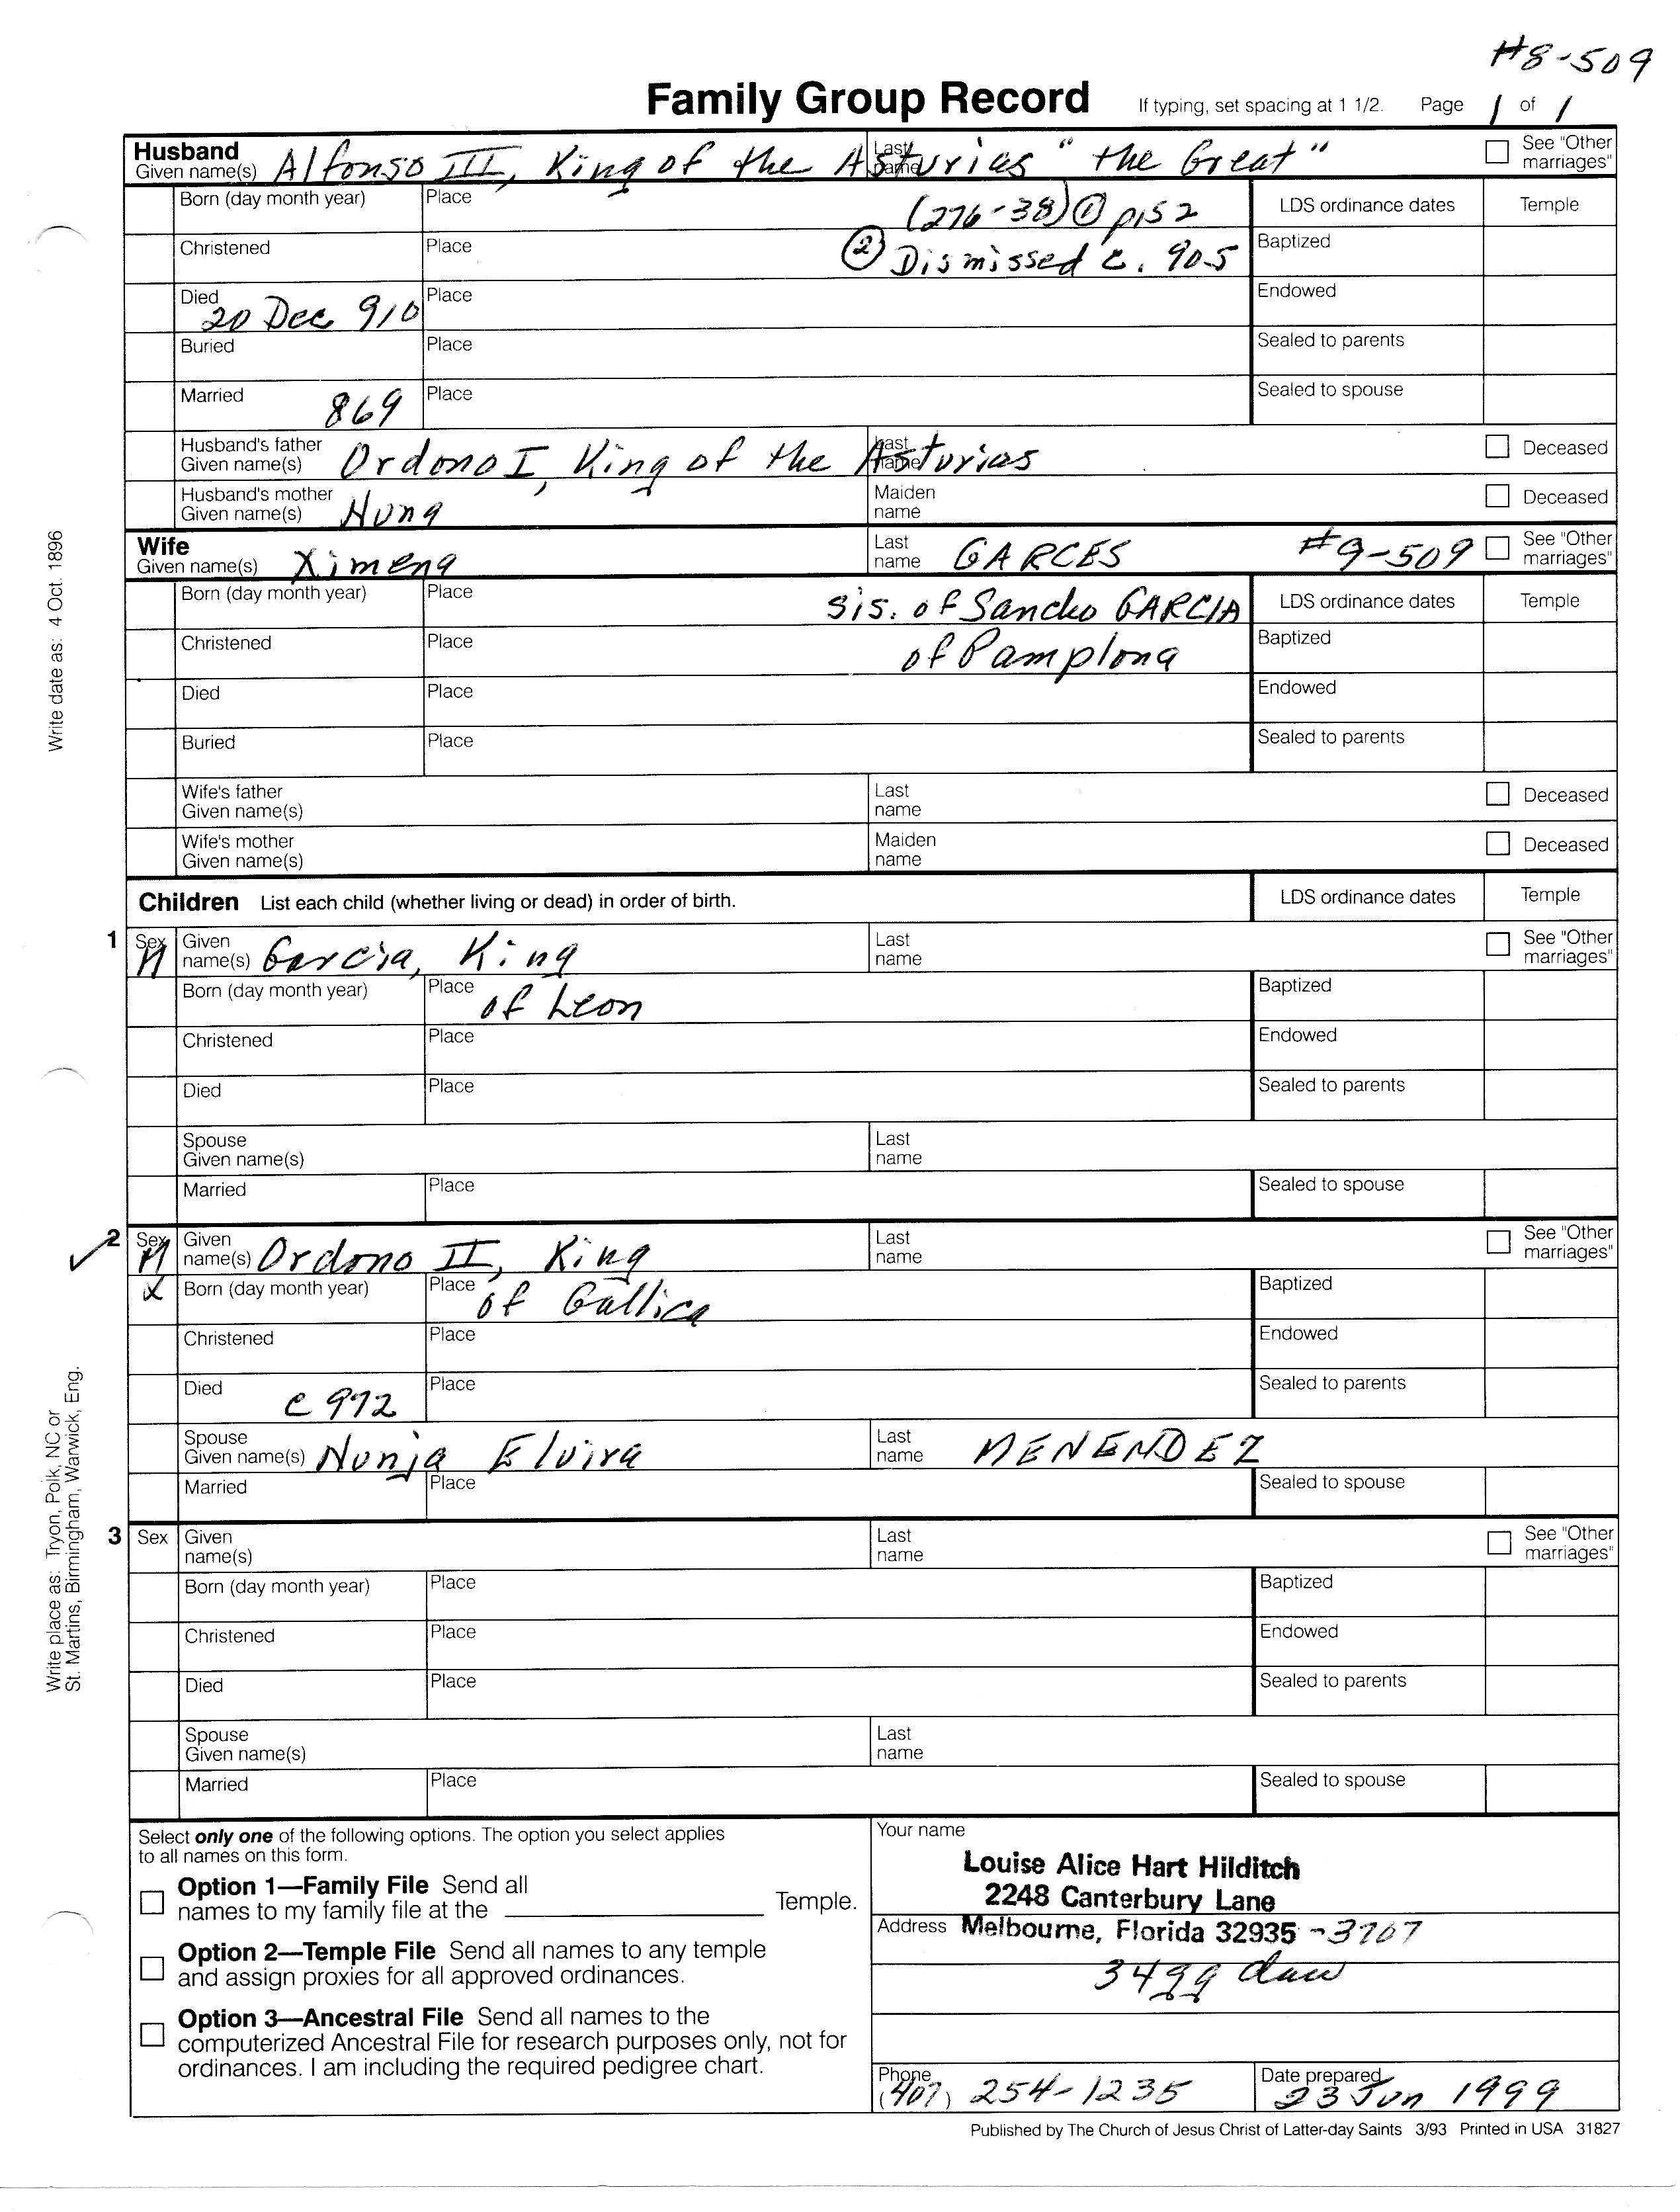 #8-509
Family Group Record If typing, set spacing at 1 1/2. Page 1 of 1
Husband
Given name(s) Alfonso III, King of the Asturias "the Great" Last name See "Other marriages"
Born (day month year) Place (276-38) ① p152 LDS ordinance dates Temple
Christened Place ② Dismissed c. 905 Baptized
Died 20 Dec 910 Place Endowed
Buried Place Sealed to parents
Married 869 Place Sealed to spouse
Husband's father Given name(s) Ordono I, King of the Asturias Last name Deceased
Husband's mother Given name(s) Nuna Maiden name Deceased
Wife
Given name(s) Ximena Last name GARCES #9-509 See "Other marriages"
Born (day month year) Place sis. of Sancho GARCIA LDS ordinance dates Temple
Christened Place of Pamplona Baptized
Died Place Endowed
Buried Place Sealed to parents
Wife's father Given name(s) Last name Deceased
Wife's mother Given name(s) Maiden name Deceased
Children List each child (whether living or dead) in order of birth. LDS ordinance dates Temple
1 Sex M Given name(s) Garcia, King Last name See "Other marriages"
Born (day month year) Place of Leon Baptized
Christened Place Endowed
Died Place Sealed to parents
Spouse Given name(s) Last name
Married Place Sealed to spouse
✓ 2 Sex M Given name(s) Ordono II, King Last name See "Other marriages"
X Born (day month year) Place of Gallica Baptized
Christened Place Endowed
Died c 972 Place Sealed to parents
Spouse Given name(s) Nunja Elvira Last name MENENDEZ
Married Place Sealed to spouse
3 Sex Given name(s) Last name See "Other marriages"
Born (day month year) Place Baptized
Christened Place Endowed
Died Place Sealed to parents
Spouse Given name(s) Last name
Married Place Sealed to spouse
Write date as: 4 Oct. 1896
Write place as: Tryon, Polk, NC or
St. Martins, Birmingham, Warwick, Eng.
Select only one of the following options. The option you select applies
to all names on this form.
Option 1—Family File Send all
names to my family file at the Temple.
Option 2—Temple File Send all names to any temple
and assign proxies for all approved ordinances.
Option 3—Ancestral File Send all names to the
computerized Ancestral File for research purposes only, not for
ordinances. I am including the required pedigree chart.
Your name
Louise Alice Hart Hilditch
2248 Canterbury Lane
Address Melbourne, Florida 32935 -3707
Phone (407) 254-1235 Date prepared 23 Jun 1999
Published by The Church of Jesus Christ of Latter-day Saints 3/93 Printed in USA 31827